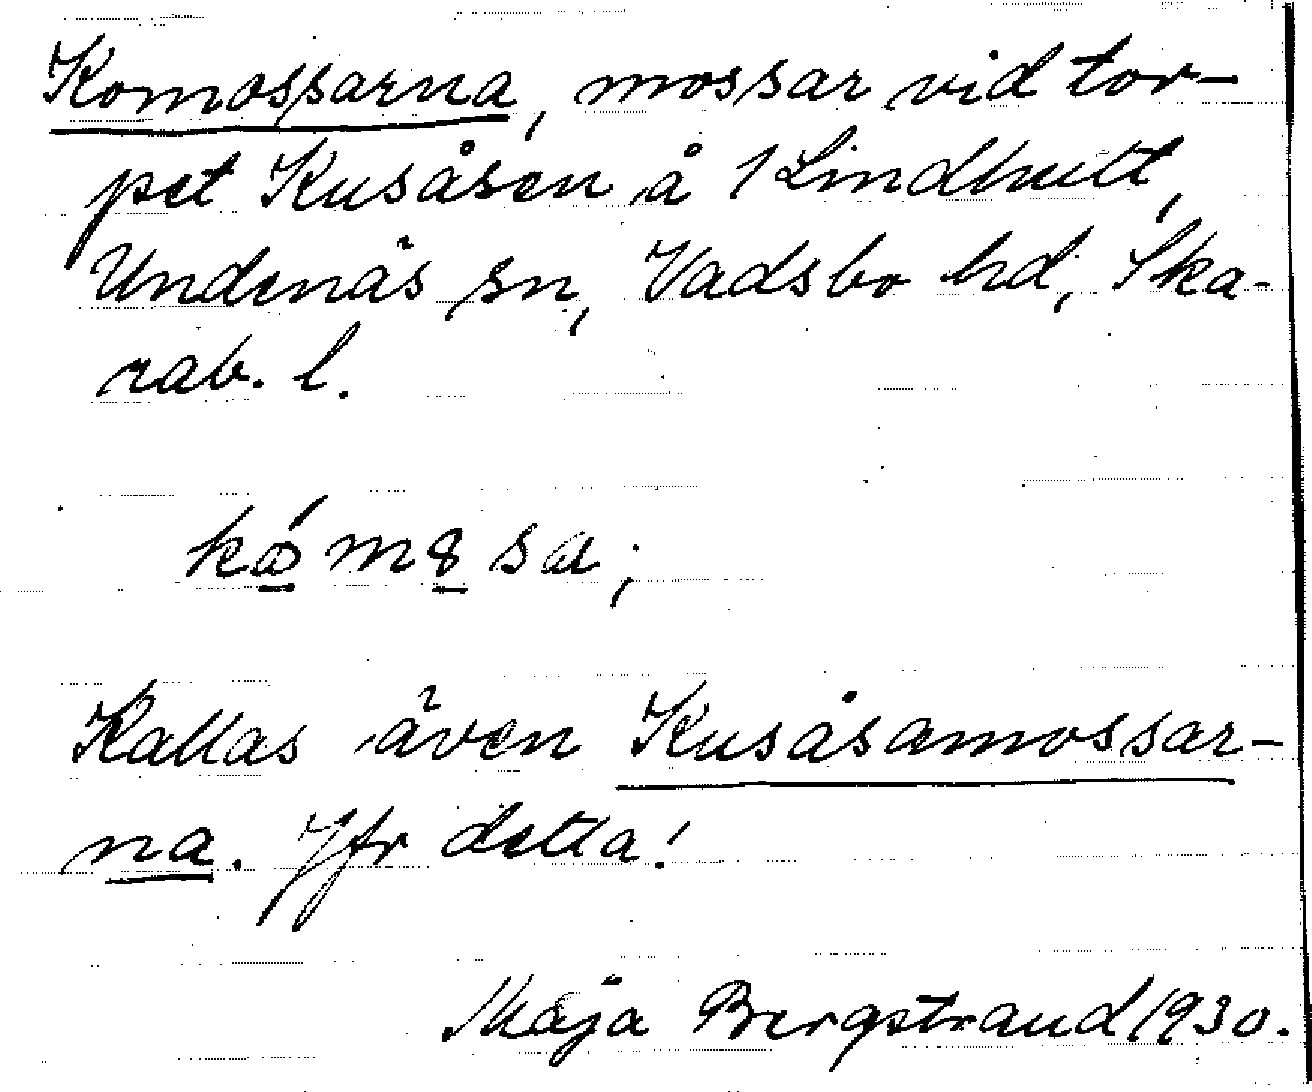 Komossarna, mossar vid tor-
pet Kusåsen å 1 Lindhult,
Undenäs sn, Vadsbo hd, Ska-
rab. l.
Kallas även Kusåsamossar-
na. Jfr detta!
Maja Bergstrand 1930.